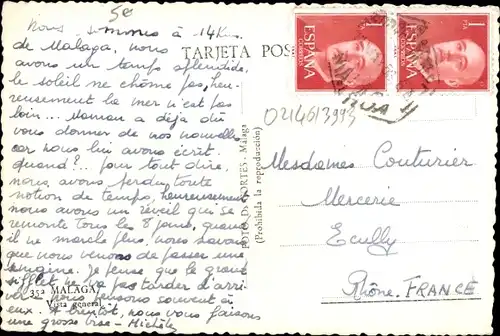 5e
Nous sommes à 14 Kms
de Malaga, nous
avons un temps splendide,
le soleil ne chôme pas, heu-
reusement la mer n'est pas
loin... Maman a déjà dû
vous donner de nos nouvelles
car nous lui avons écrit.
Quand?... pour tout dire,
nous avons perdu toute
notion de temps, heureusement
nous avons un réveil qui se
remonte tous les 8 jours, quand
il ne marche plus, nous savons
que nous venons de passer une
semaine. Je pense que le grand
sifflet ne va pas tarder d'arri-
ver. Nous pensons souvent à
eux. A bientôt, nous vous faisons
une grosse bise - Michèle
352 MALAGA
Vista general
TARJETA POS
FOTO D. CORTES. Málaga
(Prohibida la reproducción)
1
PTA
ESPAÑA
CORREOS
1
PTA
ESPAÑA
CORREOS
0214613993
Mesdames Couturier
Mercerie
Ecully
Rhône. FRANCE